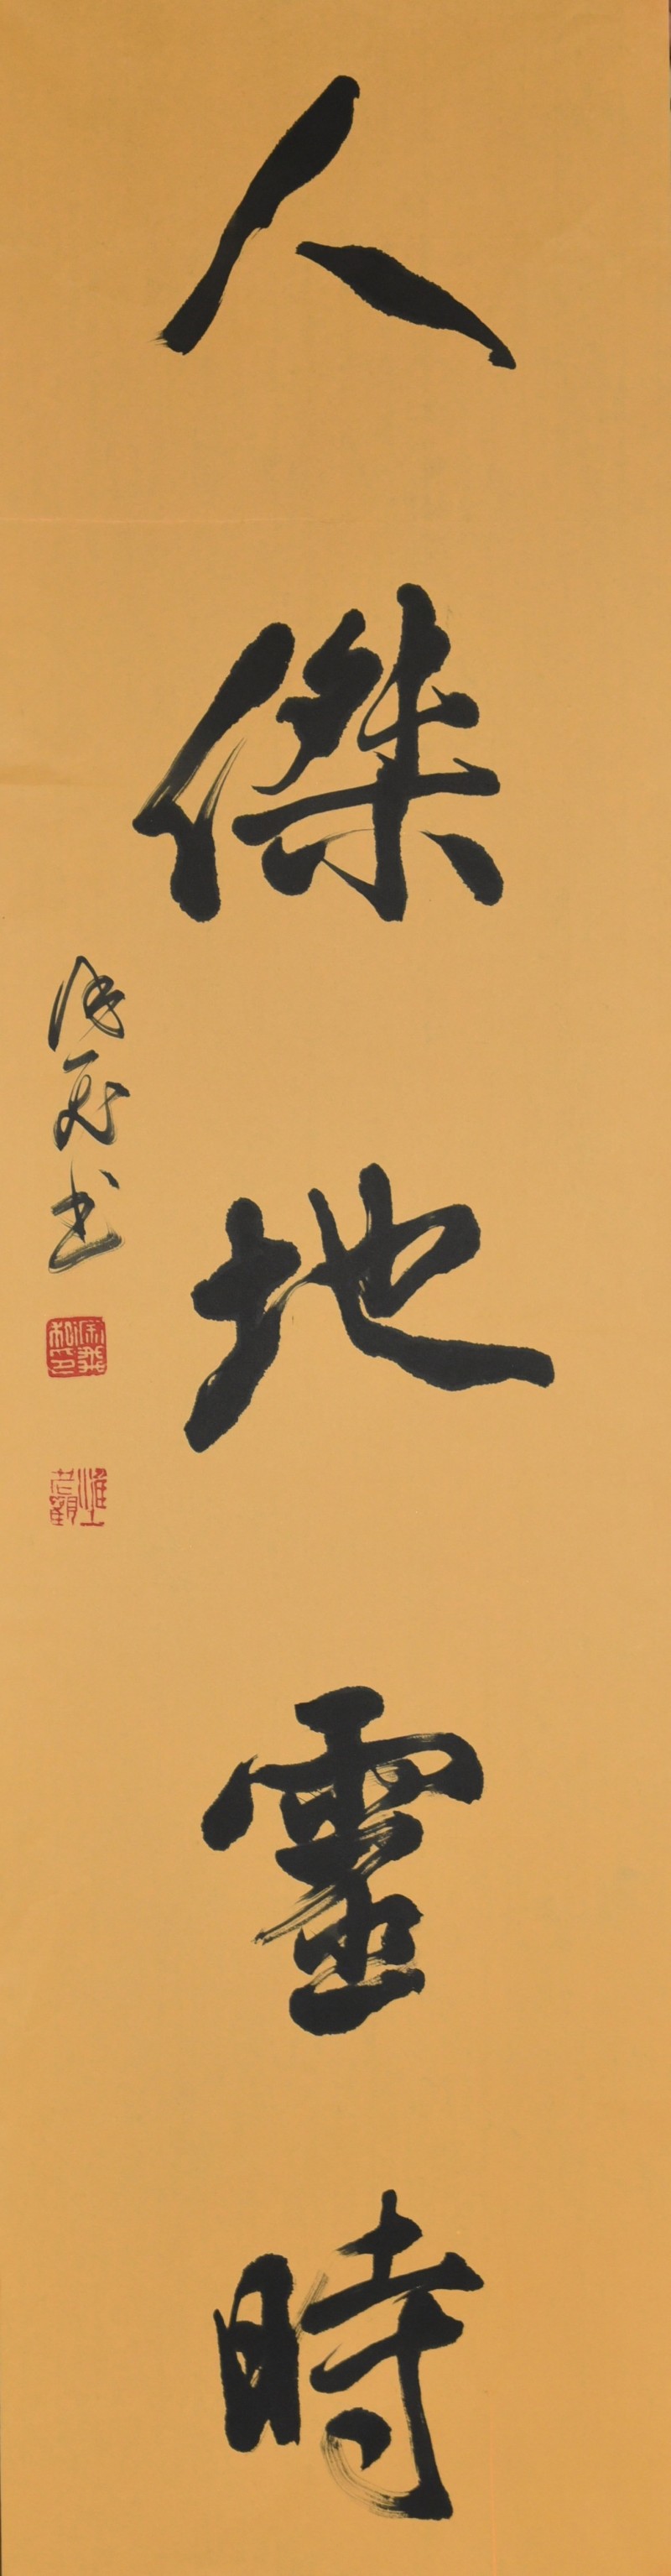 人傑地靈時